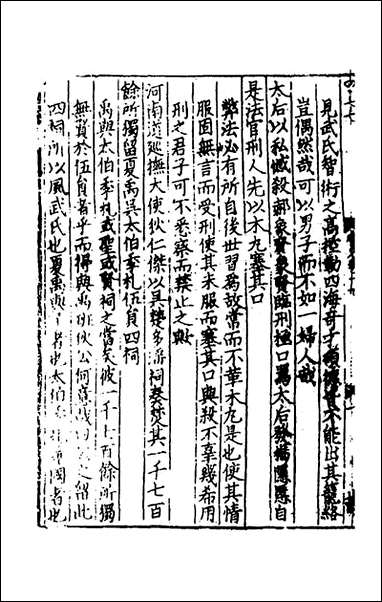 見武氏智術之高悲動四海奇才
不能出其籠絡
豈偶然哉可以男子而不如一婦人哉
太后以私憾殺郝象賢象賢臨刑極口罵太后發揚隱慝自
是法官刑人先以木丸塞其口
弊法必有所自後世習為故當而不革木丸是也使其情
服固無言而受刑使其未服而塞其口與殺不辜幾希用
刑之君子可不悉察而禁止之歟
河南道巡撫大使狄仁傑以吳楚多淫祠奏焚其一千七百
餘所獨留夏禹吳太伯季札伍員四祠
禹與太伯季札或聖或賢祠之當矣彼一千七百餘所獨
無賢於伍員者乎而得與禹並狄公何意哉曰之留此
四祠所以風武氏也夏禹與子者也太伯國者也